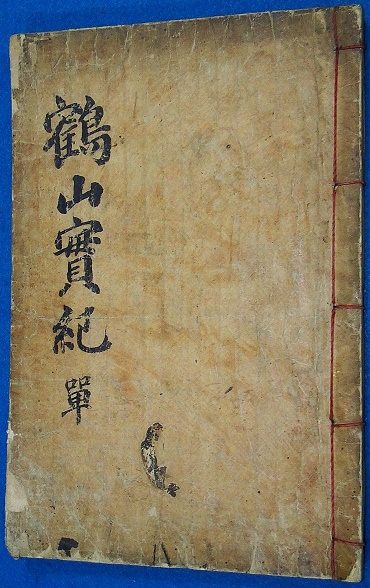 鶴山實紀 單